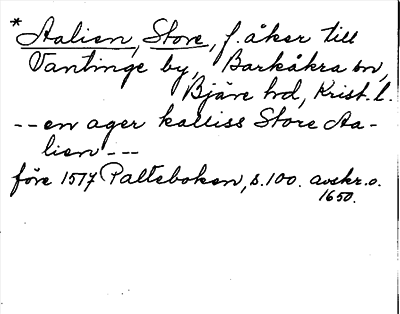 * Aalien, Store, f. åker till
Vantinge by, Barkåkra sn,
Bjäre hd, Krist. l.
-- en ager kalliss Store Aa-
lien ---
före 1517 Palteboken, s. 100. avskr. o.
1650.